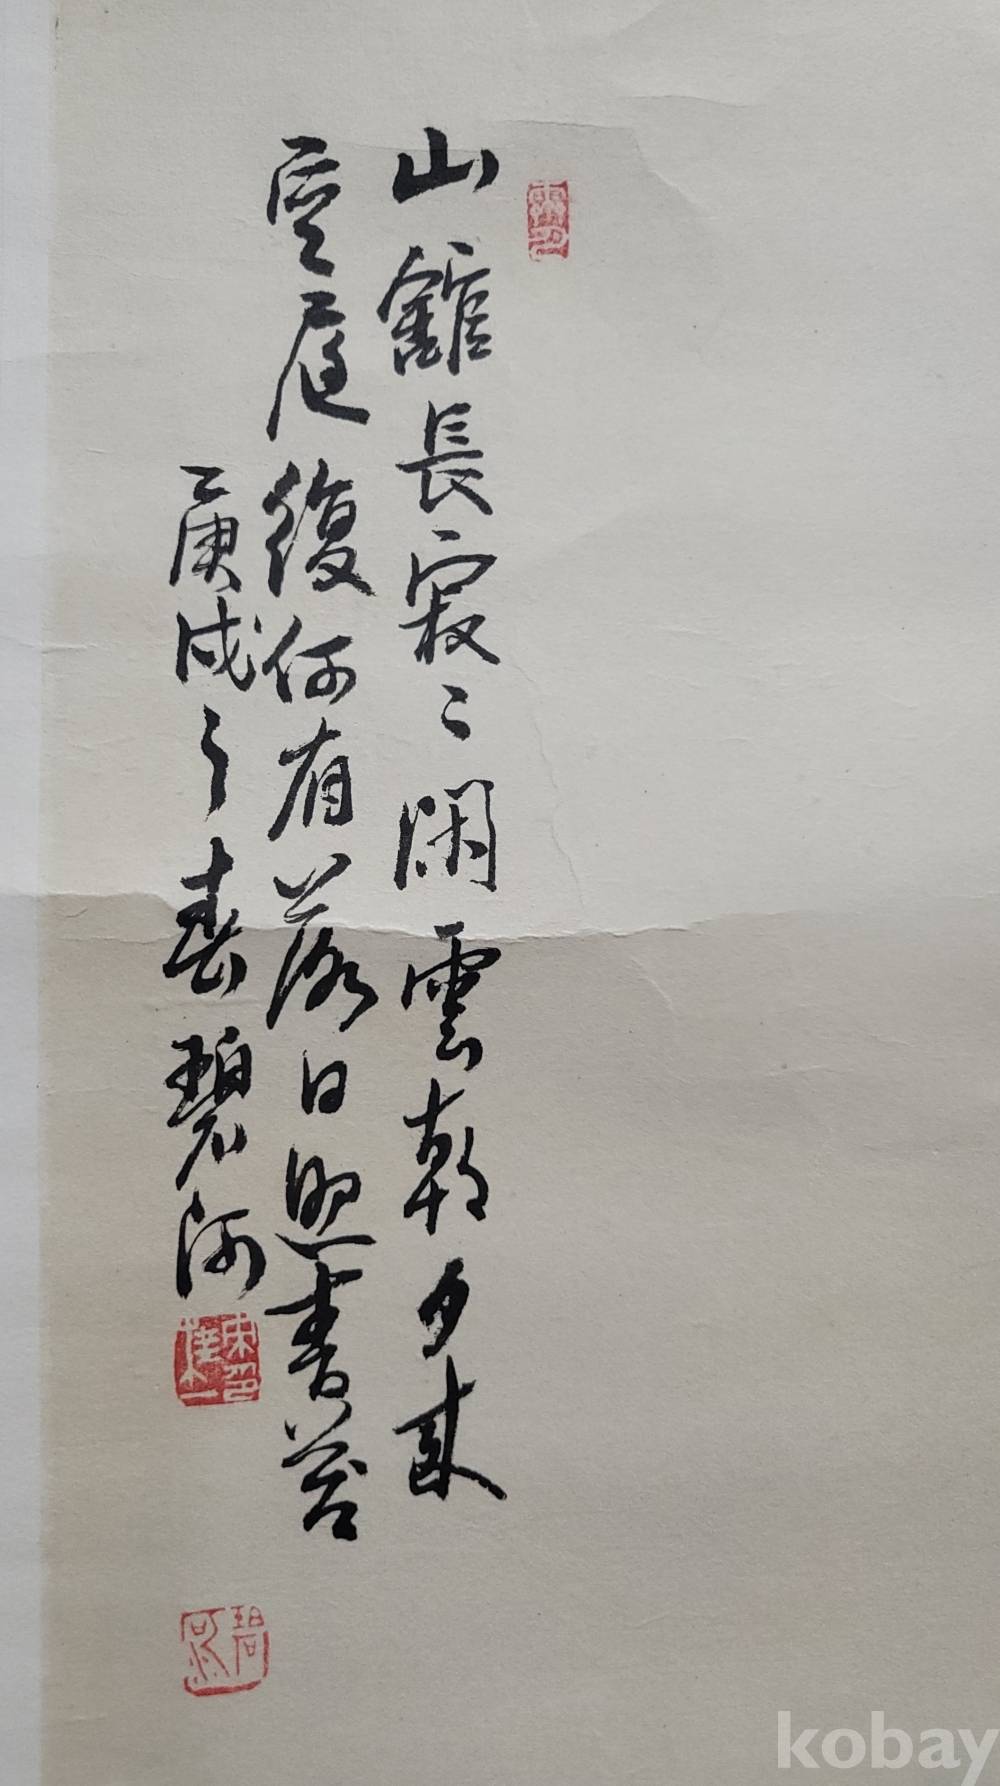 山館長寂〻閑雲朝夕來
空庭復何有落日照青苔
庚戌之春碧河
kobay